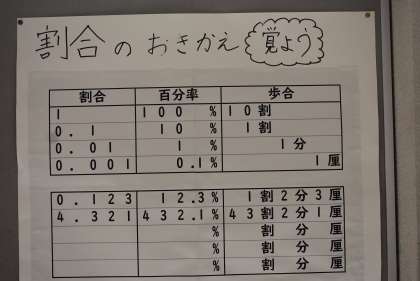 割合のおきかえ 覚よう
割合 百分率 歩合
1 100% 10割
0.1 10% 1割
0.01 1% 1分
0.001 0.1% 1厘
0.123 12.3% 1割2分3厘
4.321 432.1% 43割2分1厘
% 割 分 厘
% 割 分 厘
% 割 分 厘